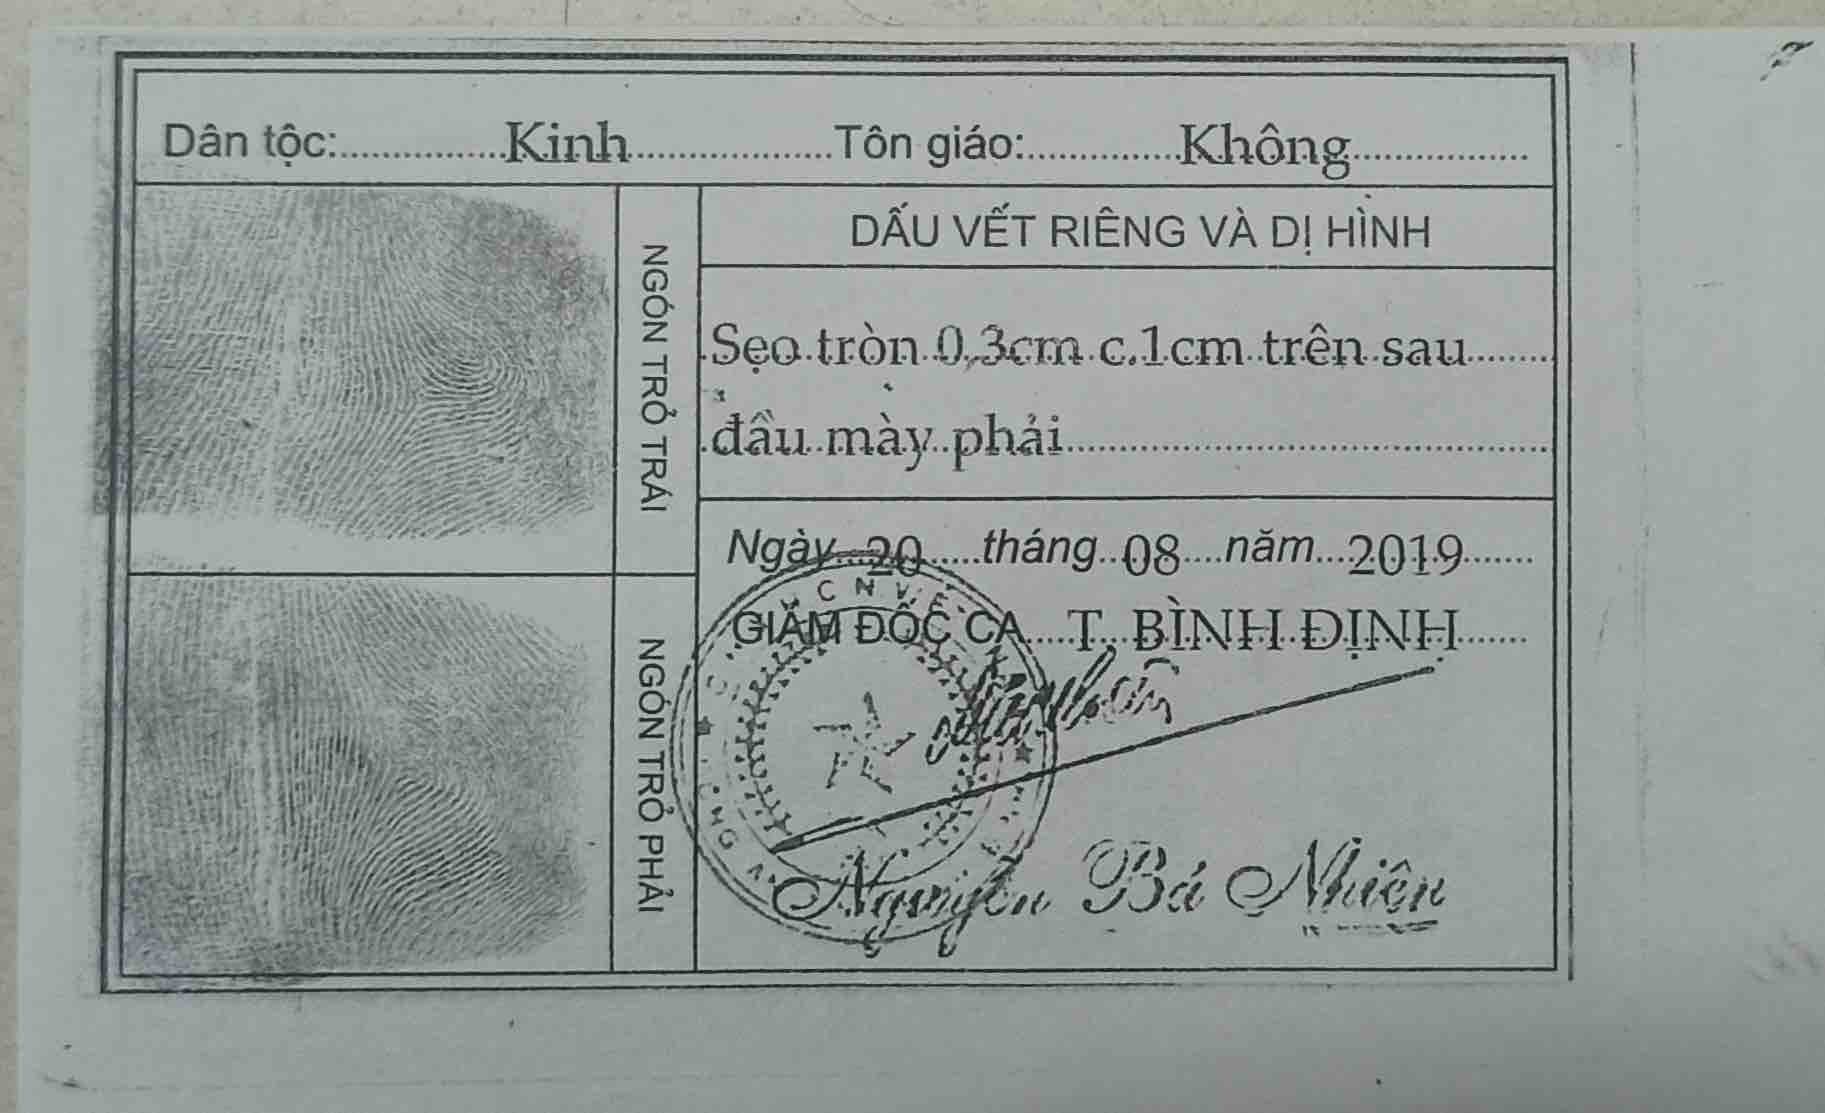 Dân tộc: Kinh Tôn giáo: Không
DẤU VẾT RIÊNG VÀ DỊ HÌNH
NGÓN TRỎ TRÁI
Sẹo tròn 0,3cm c.1cm trên sau
đầu mày phải
Ngày 20 tháng 08 năm 2019
GIÁM ĐỐC CA T. BÌNH ĐỊNH
NGÓN TRỎ PHẢI
Nguyễn Bá Nhiên